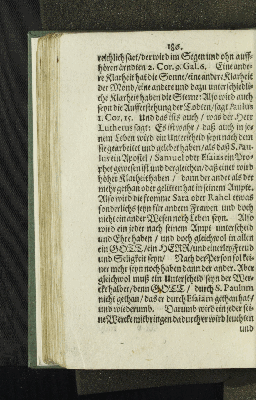 186.
reichlich säet / der wird im Segen und ohn auff-
hören ärndten 2. Cor. 9. Gal. 6. Eine ande-
re Klarheit hat die Sonne / eine andere Klarheit
der Mond / eine andere und dazu unterschiedli-
che Klarheit haben die Sterne: Also wird auch
seyn die Aufferstehung der Todten / sagt Paulus
1. Cor. 15. Und das ists auch / was der Herr
Lutherus sagt: Es ist wahr / daß auch in je-
nem Leben wird ein Unterscheid seyn nach dem
sie gearbeitet und gelebet haben / als daß S. Pau-
lus ein Apostel / Samuel oder Esaias ein Pro-
phet gewesen ist und dergleichen / daß einer wird
höher Klarheit haben / dann der ander als der
mehr gethan oder gelitten hat in seinem Ampte.
Also wird die fromme Sara oder Rahel etwas
sonderlichs seyn für andern Frauen und doch
nicht ein ander Wesen noch Leben seyn. Also
wird ein jeder nach seinem Ampt unterscheid
und Ehre haben / und doch gleichwol in allen
ein GOTT / ein HERR / und einerley Freud
und Seligkeit seyn / Nach der Person sol kei-
ner mehr seyn noch haben dann der ander. Aber
gleichwol muß ein Unterscheid seyn der Wer-
cke halber / denn GOTT / durch S. Paulum
nicht gethan / das er durch Esaiam gethan hat /
und wiederumb. Darumb wird ein jeder sei-
ne Wercke mitbringen dadurch er wird leuchten
und